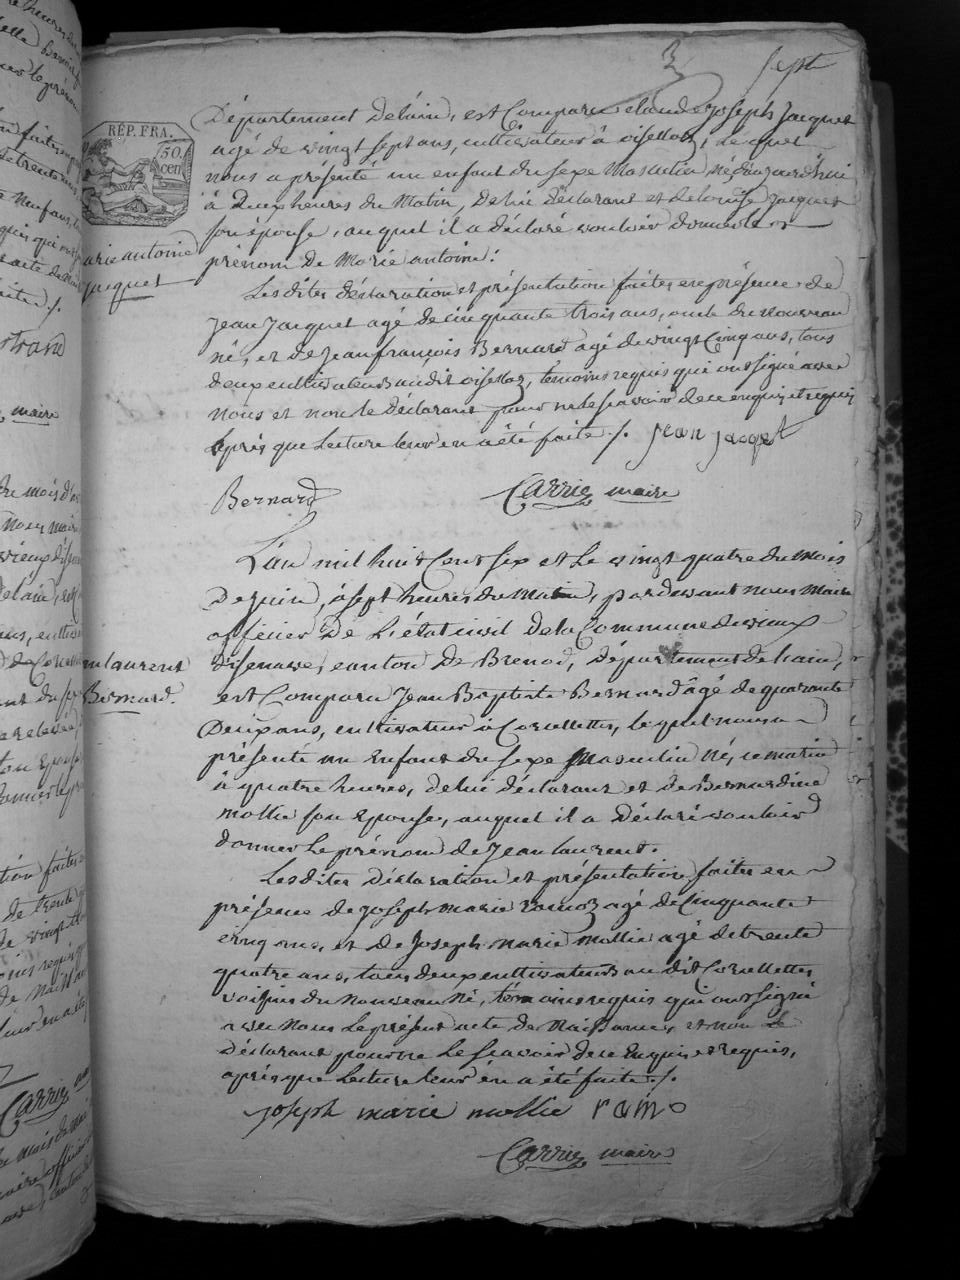 7 Sept
Département de lain, est Comparu claude joseph Jacquet
âgé de vingt sept ans, cultivateur à oisellaz, lequel
nous a présenté un enfant du sexe Masculin né daujourd'hui
à deux heures du Matin, de lui déclarant et de louise Jacquet
son épouse, auquel il a déclaré vouloir donner le
prénom de Marie antoine.
RÉP. FRA.
50
cen
arie antoine
Jacquet
Lesdites déclaration et présentation faites en présence de
Jean Jacquet agé de cinquante trois ans, oncle du nouveau
né, et de jean françois Bernard agé de vingt Cinq ans, tous
deux cultivateurs audit oisellaz, témoins requis qui ont signé avec
nous et non le déclarant pour ne le scavoir de ce enquis et requis
après que Lecture leur en a été faite ./. jean jacqet
Bernard Carrier maire
L'an mil huit Cent six et le vingt quatre du Mois
de juin, à sept heures du Matin, pardevant nous Maire
officier de L'état civil de la Commune de vieux
disenave, canton de Brenod, département de lain,
est Comparu Jean Baptiste Bernard âgé de quarante
deux ans, cultivateur à Corcellettes, lequel nous a
présenté un Enfant du sexe Masculin né, ce matin
à quatre heures, de lui déclarant et de Bernardine
mollie son Epouse, auquel il a déclaré vouloir
donner Le prénom de Jean laurent.
n laurent
Bernard.
Lesdites déclaration et présentation faites en
présence de joseph marie ramoz agé de Cinquante
cinq ans, et de Joseph marie mollie agé de trente
quatre ans, tous deux cultivateurs au dit Corcellettes
voisins du nouveau né, témoins requis qui ont signé
avec nous Le présent acte de naissance, et non le
déclarant pour ne Le scavoir de ce Enquis et requis,
après que Lecture leur en a été faite ./.
joseph marie mollie ramo
Carrier maire